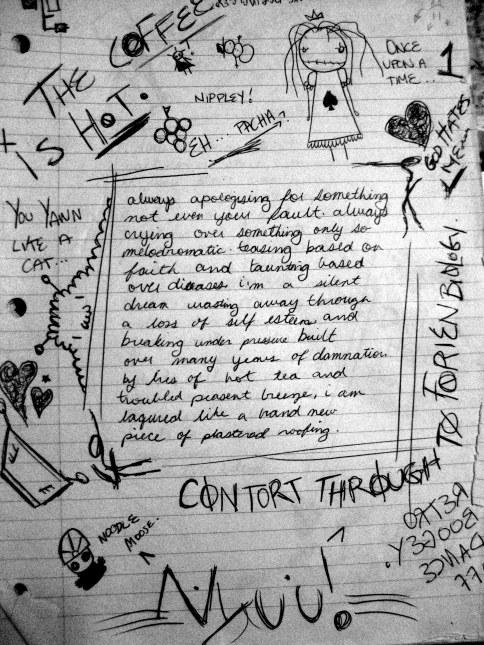 THE COFFEE
IS HOT.
NIPPLEY!
EH... PACHA
ONCE
UPON A
TIME...
1
GOD HATES
ME
YOU YAWN
LIKE A
CAT...
always apologising for something
not even your fault. always
crying over something only so
melodromatic. teasing based on
faith and taunting based
over diseases i'm a silent
dream wasting away through
a loss of self esteem and
breaking under pressure built
over many years of damnation.
by lies of hot tea and
troubled peasent breeze, i am
laqured like a brand new
piece of plastered roofing.
CONTORT THROUGH
TO FORIEN BIOLOGY.
NOODLE
MOOSE.
RETRO
BOOGEY.
DANCE
OFF
Nyuu!